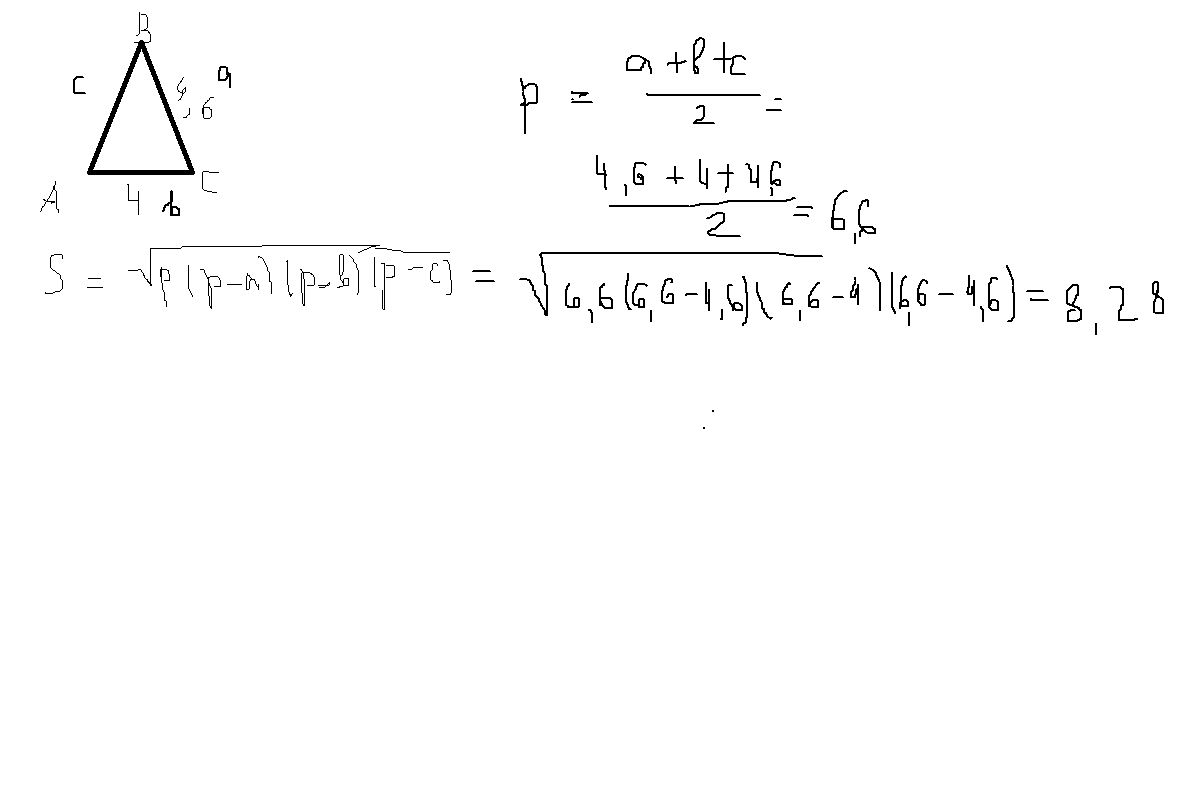 B
c
4,6 a
A
4 b
C
p = a+b+c/2 =
4,6+4+4,6/2 = 6,6
S = √p(p-a)(p-b)(p-c) = √6,6(6,6-4,6)(6,6-4)(6,6-4,6) = 8,28